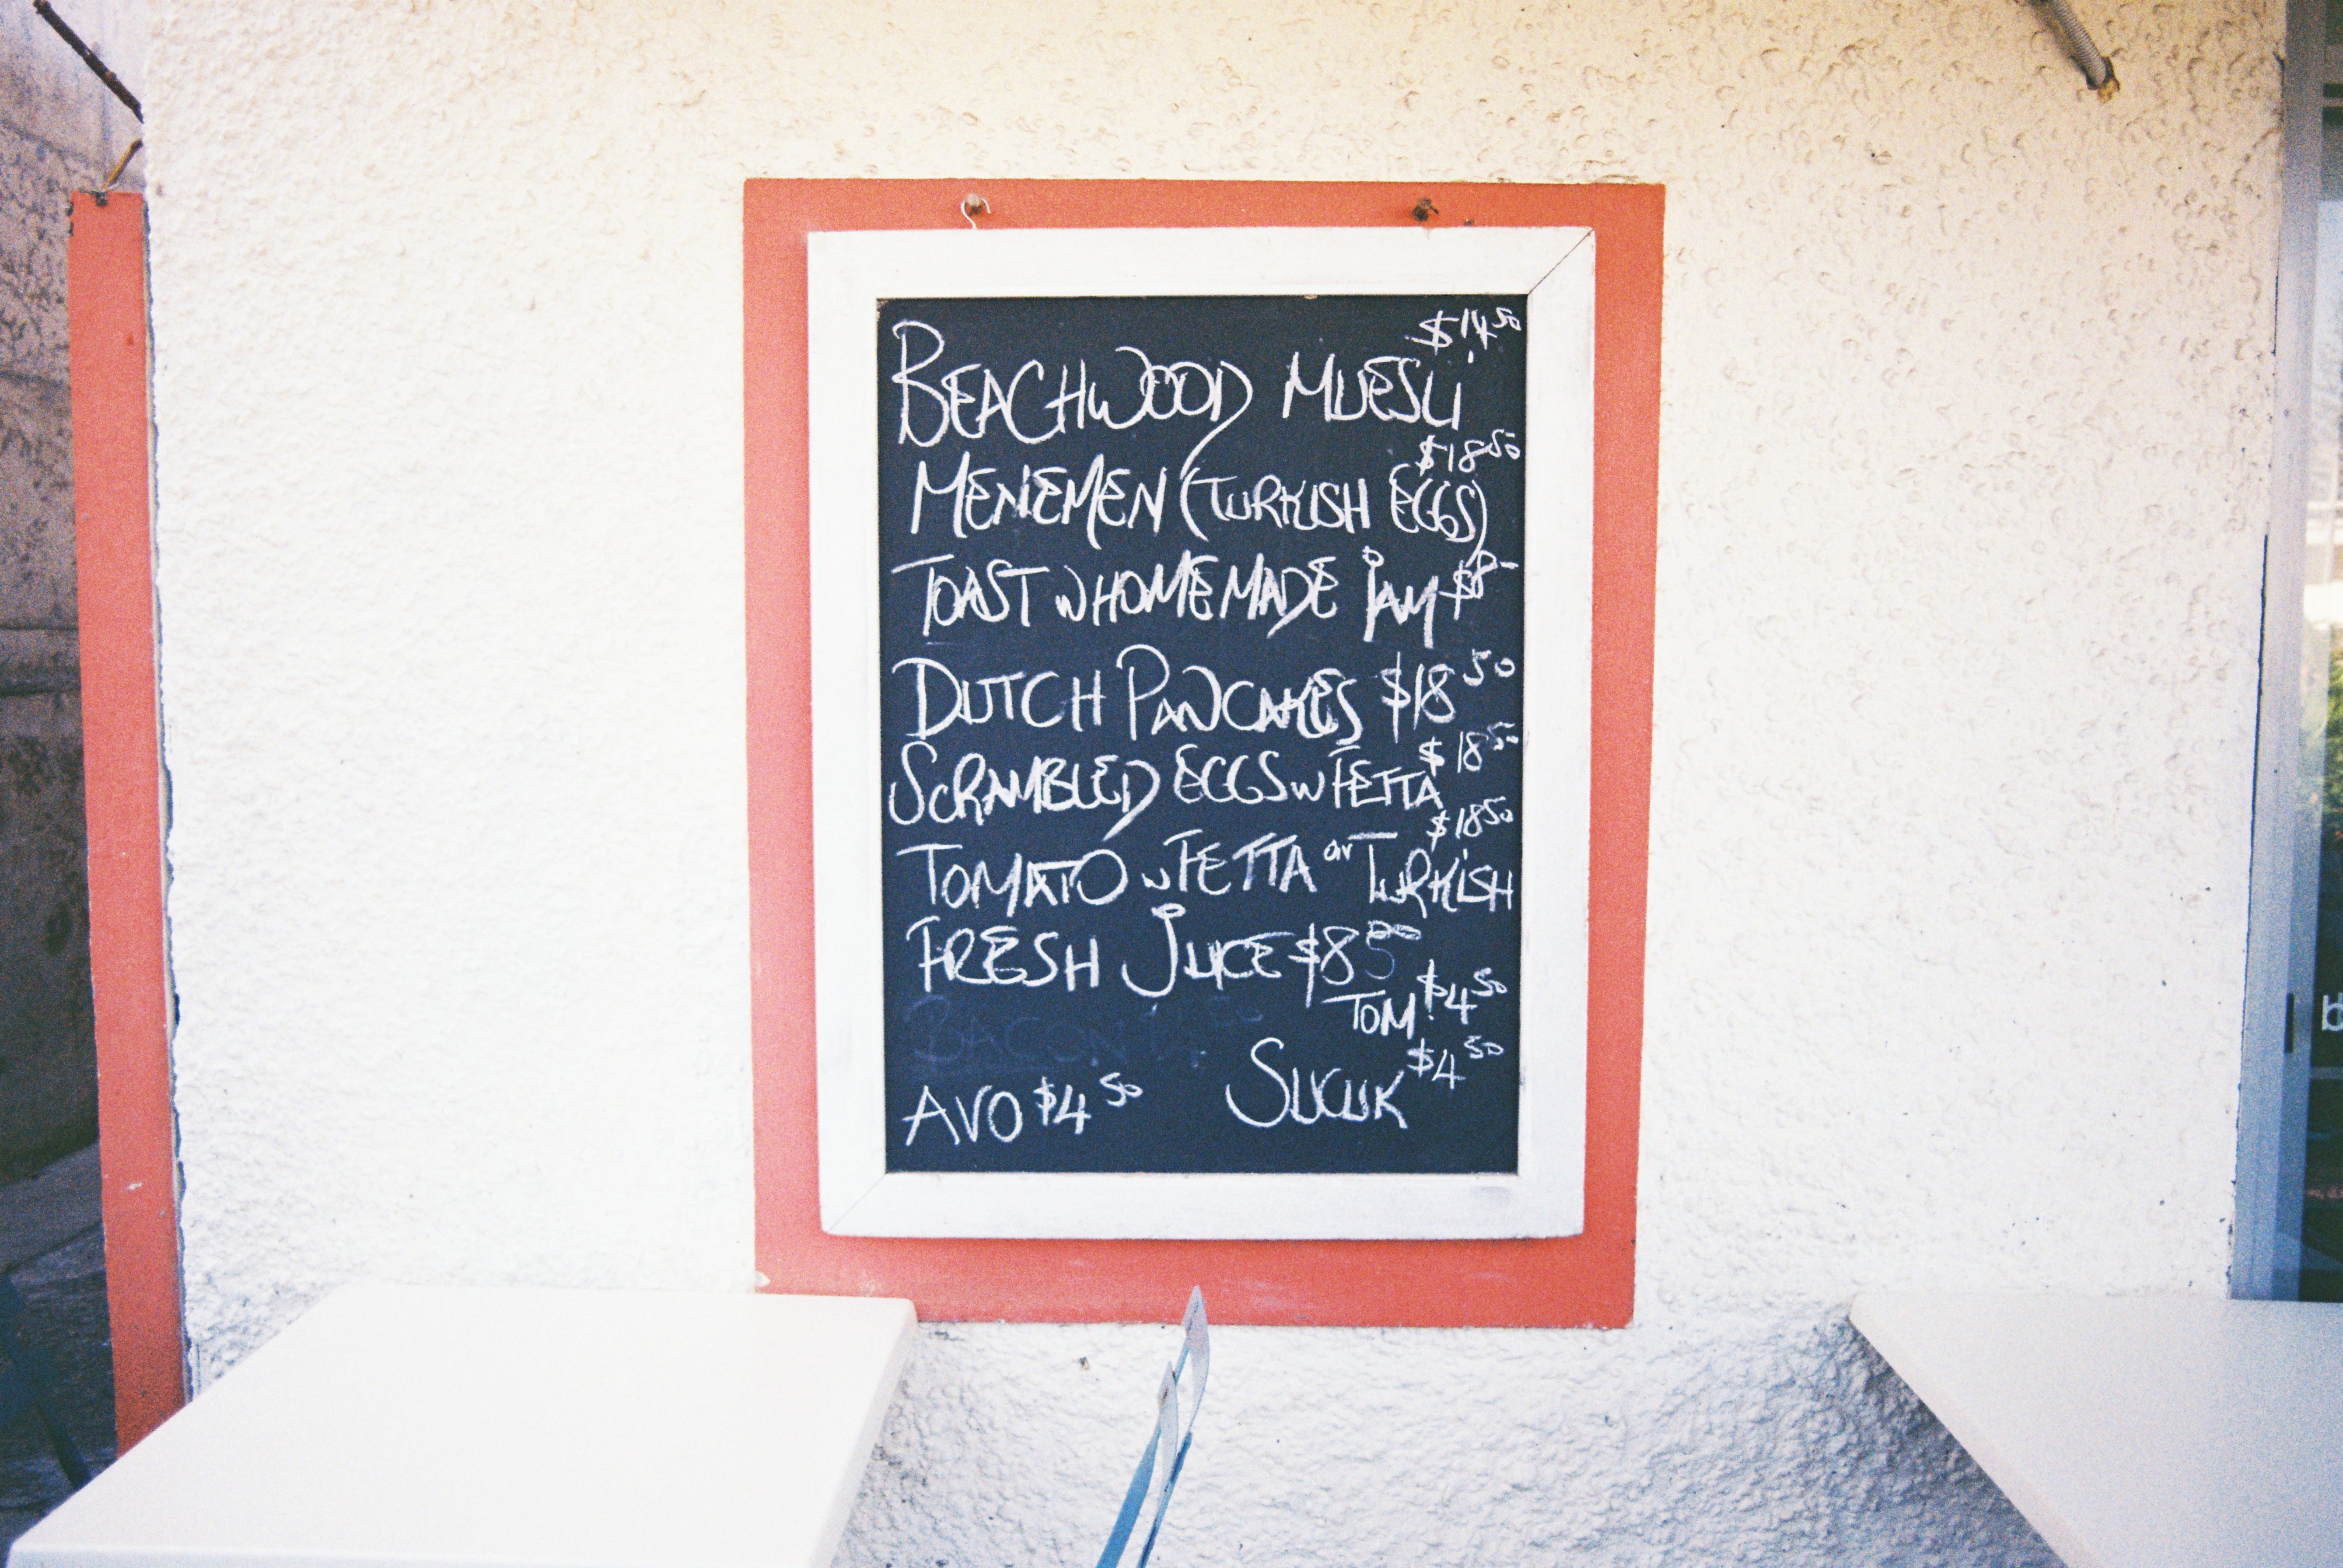 $14 50
BEACHWOOD MUESLi
$18 50
MENEMEN (TURKISH EGGS)
TOAST W HOMEMADE JAM $8-
DUTCH PANCAKES $18 50
SCRAMBLED EGGS W FETTA $18 50
$18 50
TOMATO W FETTA or TURKiSH
FRESH JUICE $8 50
TOM $4 50
BACON
AVO $4 50 SUCUK $4 50
b